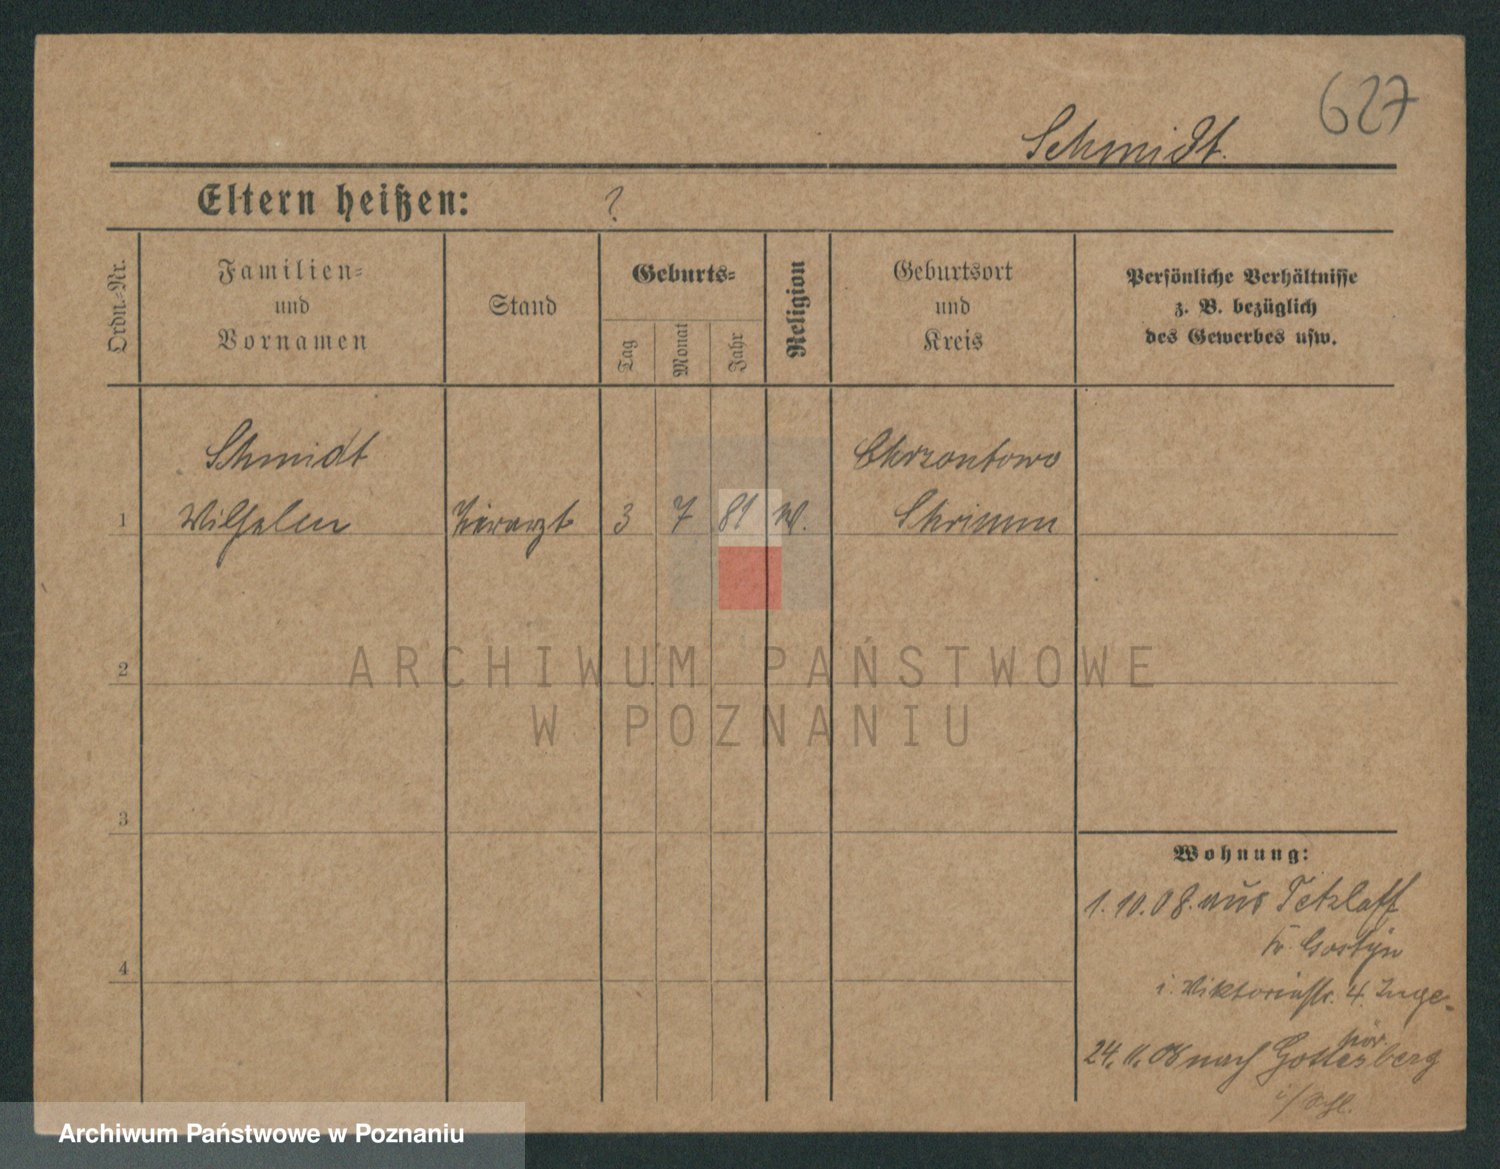 627
Schmidt.
Eltern heißen: ?
Ordn.-Nr.
Familien-
und
Vornamen
Stand
Geburts-
Tag
Monat
Jahr
Religion
Geburtsort
und
Kreis
Persönliche Verhältnisse
z. B. bezüglich
des Gewerbes usw.
Schmidt Chrzontowo
1 Wilhelm Tierarzt 3 7 81 Schrimm
2
ARCHIWUM PAŃSTWOWE
W POZNANIU
3
4
Wohnung:
1.10.08. aus Tetzlaff
Kr. Gostyn
i. Viktoriastr. 4.
24.11.08 nach Gottesberg
i/Schl.
Archiwum Państwowe w Poznaniu